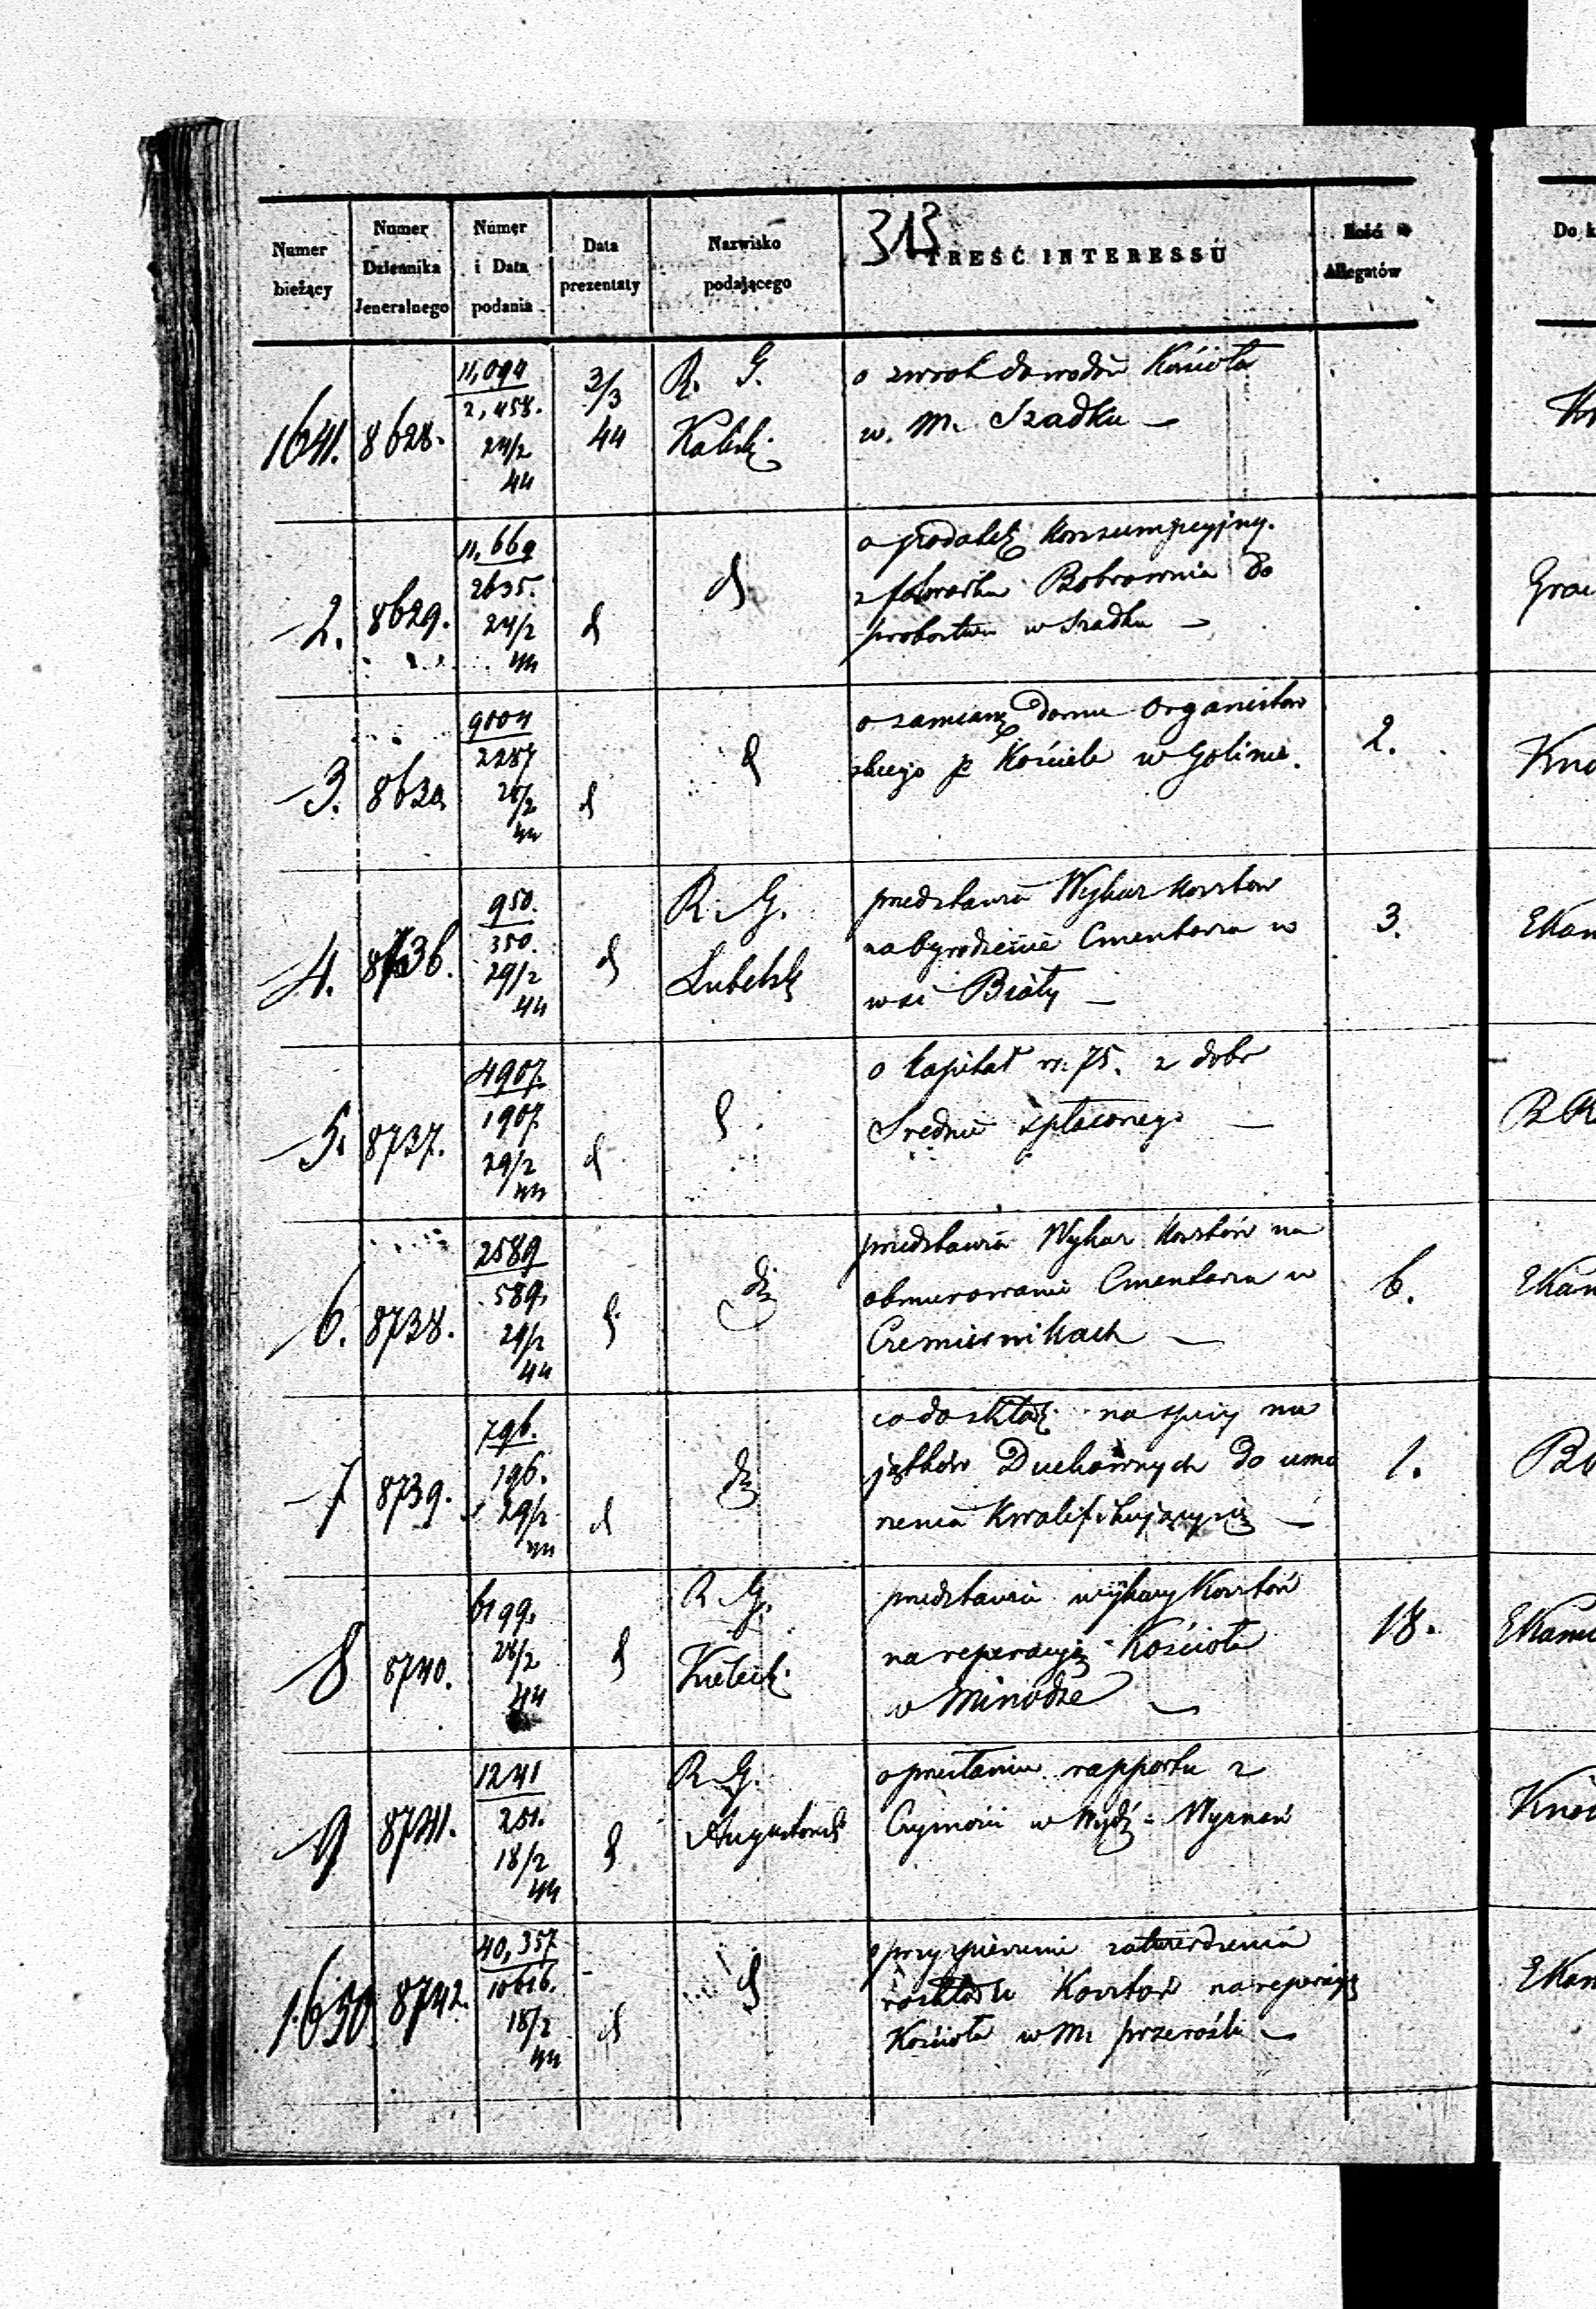 313
Numer bieżący
Numer Dziennika Jeneralnego
Numer i Data podania
Data prezentaty
Nazwisko podającego
TREŚĆ INTERESSU
Ilość Allegatów
Do k
1641. 8628. 11,094 2,458. 24/2 44 2/3 44 R. G. Kalisk.
o zwrot dowodów Kościoła
w. M. Szadku —
2. 8629. 11,669 2635. 24/2 44 d d
o podatek konsumpcyjny.
z folwarku Bobrownia do
probostwa w Szadku —
Grac
3. 8630 9004 2287 44 d d
o zamianę domu Organistow
skiego p. Kościele w Golinie. 2.
4. 8736. 950. 350. 29/2 44 d R. G. Lubelsk
przedstawia Wykaz Kosztów
na ogrodzenie Cmentarza w
wsi Biały — 3.
5. 8737. 4907. 1907. 29/2 44 d d
o kapitał rs. 75. z dobr
Średnie spłaconego —
6. 8738. 2589 589. 29/2 44 d dt
przedstawia Wykaz Kosztów na
obmurowanie Cmentarza w
Czemiernikach — 6.
7 8739. 796. 196. 29/2 44 d dt
co do składk. na spisy ma
jątków Duchownych do umo
rzenia Kwalifikujących się — 1.
8 8740. 6199. 28/2 44 d R. G. Kieleck.
przedstawia wykazy Kosztów
na reperacyją Kościoła
w Minodze — 18.
9 8741. 1241 251. 18/2 44 d R. G. Augustowsk
o przesłanie rapportu z
Czynności w Wydz. Wyznań
1650 8742. 40,357 10616. 18/2 44 d d
o przyspieszenie zatwierdzenia
rozkładu Kosztów na reperacyę
Kościoła w M. Przerośli —